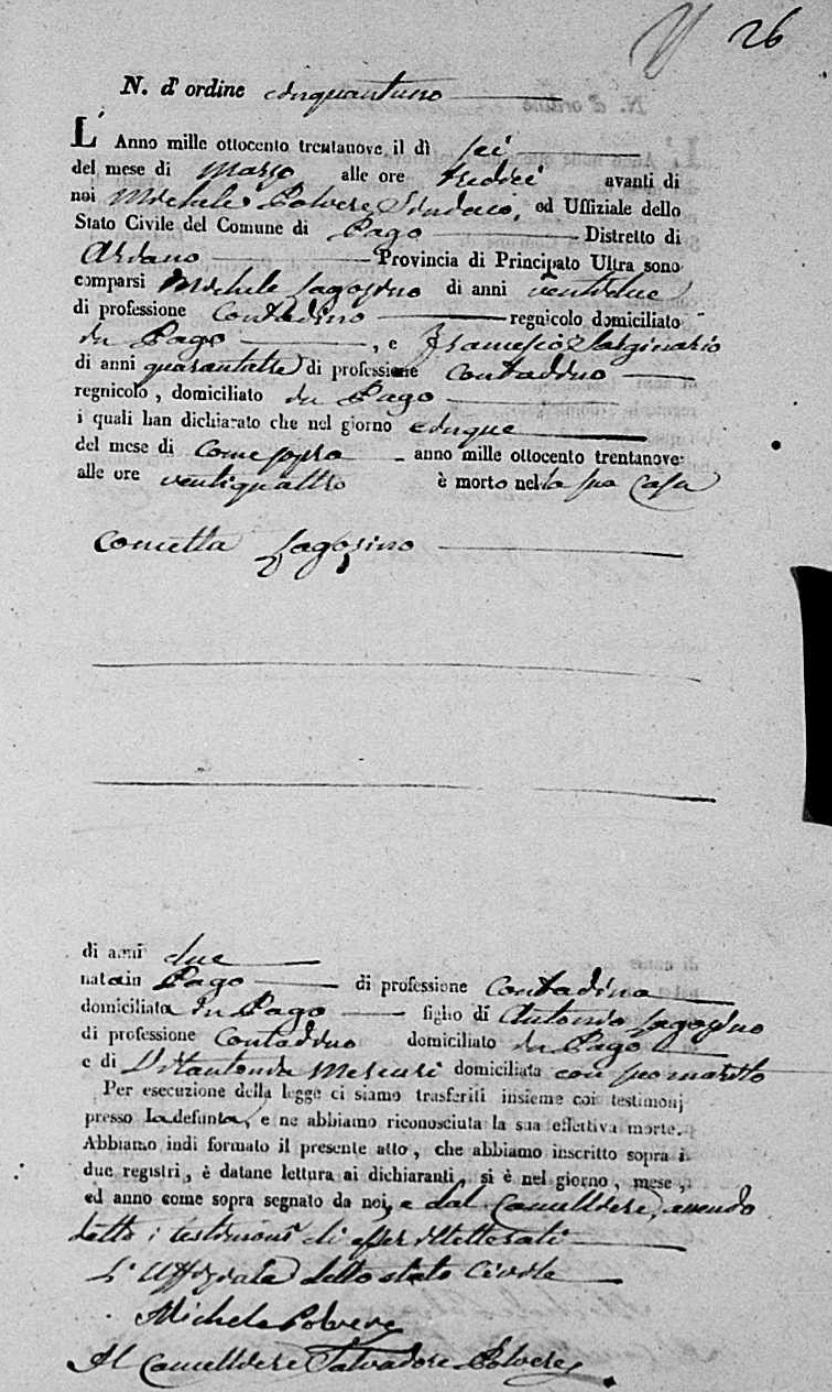 26
N. d' ordine cinquantuno
L' Anno mille ottocento trentanove il dì sei
del mese di Marzo alle ore tredici avanti di
noi Michele Polvere Sindaco, ed Uffiziale dello
Stato Civile del Comune di Pago Distretto di
Ariano Provincia di Principato Ultra sono
comparsi Michele Iagosino di anni ventidue
di professione Contadino regnicolo domiciliato
in Pago, e Francesco
di anni quarantatre di professione Contadino
regnicolo, domiciliato in Pago
i quali han dichiarato che nel giorno cinque
del mese di Come sopra anno mille ottocento trentanove
alle ore ventiquattro è morto nella sua Casa
Concetta Iagosino
di anni due
nata in Pago di professione Contadina
domiciliata in Pago figlio di Antonio Iagosino
di professione Contadino domiciliato in Pago
e di Vitantonia Mercuri domiciliata con suo marito
Per esecuzione della legge ci siamo trasferiti insieme coi testimonj
presso la defunta, e ne abbiamo riconosciuta la sua effettiva morte.
Abbiamo indi formato il presente atto, che abbiamo inscritto sopra i
due registri, è datane lettura ai dichiaranti, si è nel giorno, mese,
ed anno come sopra segnato da noi, e dal Cancelliere, avendo
detto i testimoni di esser illetterati
L' Uffiziale dello stato Civile
Michele Polvere
Il Cancelliere Salvadore Polvere